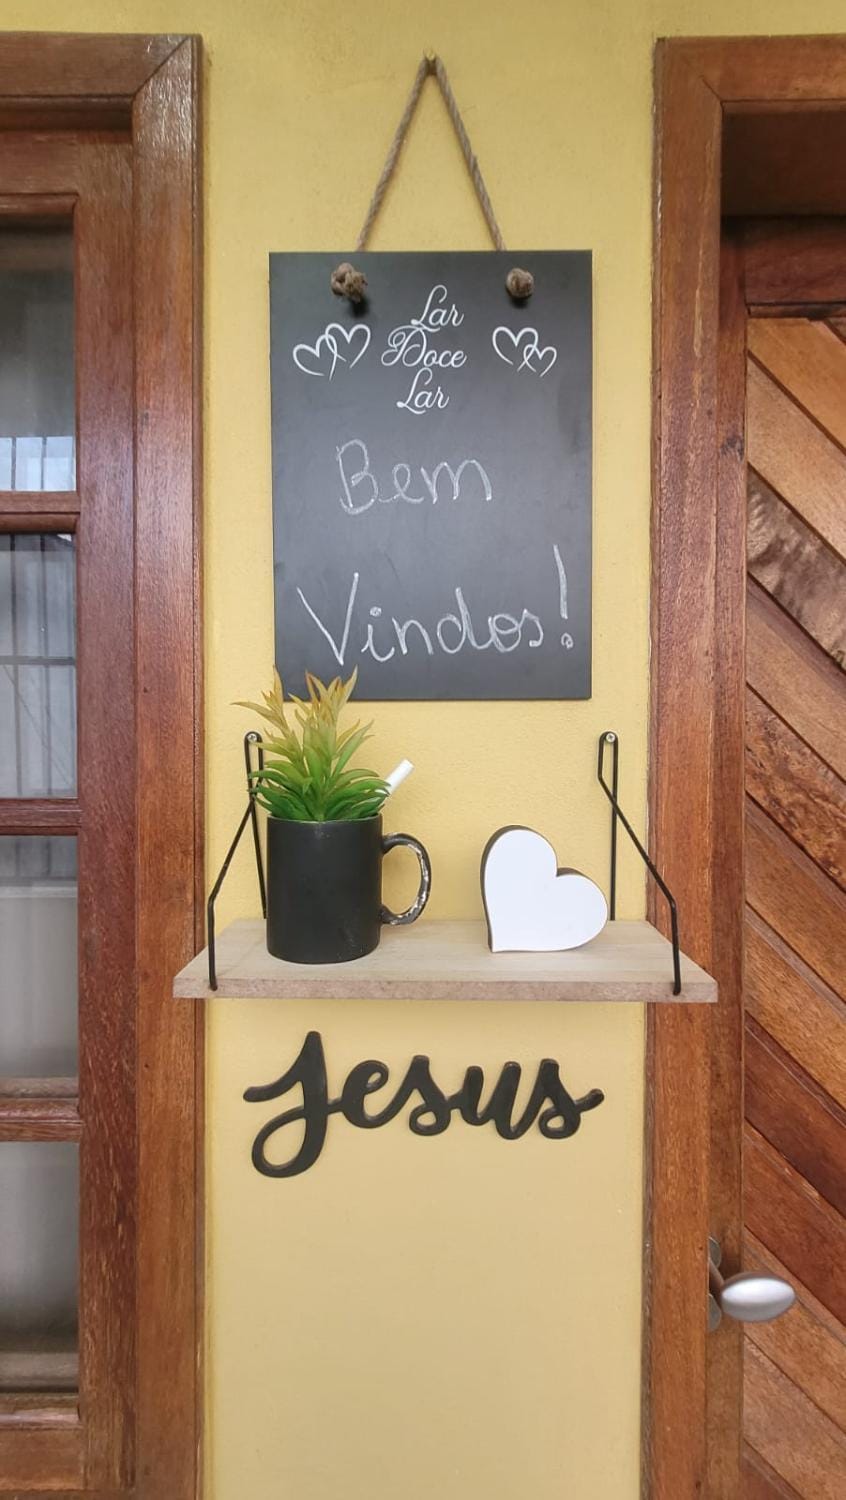 Lar
Doce
Lar
Bem
Vindos!
Jesus